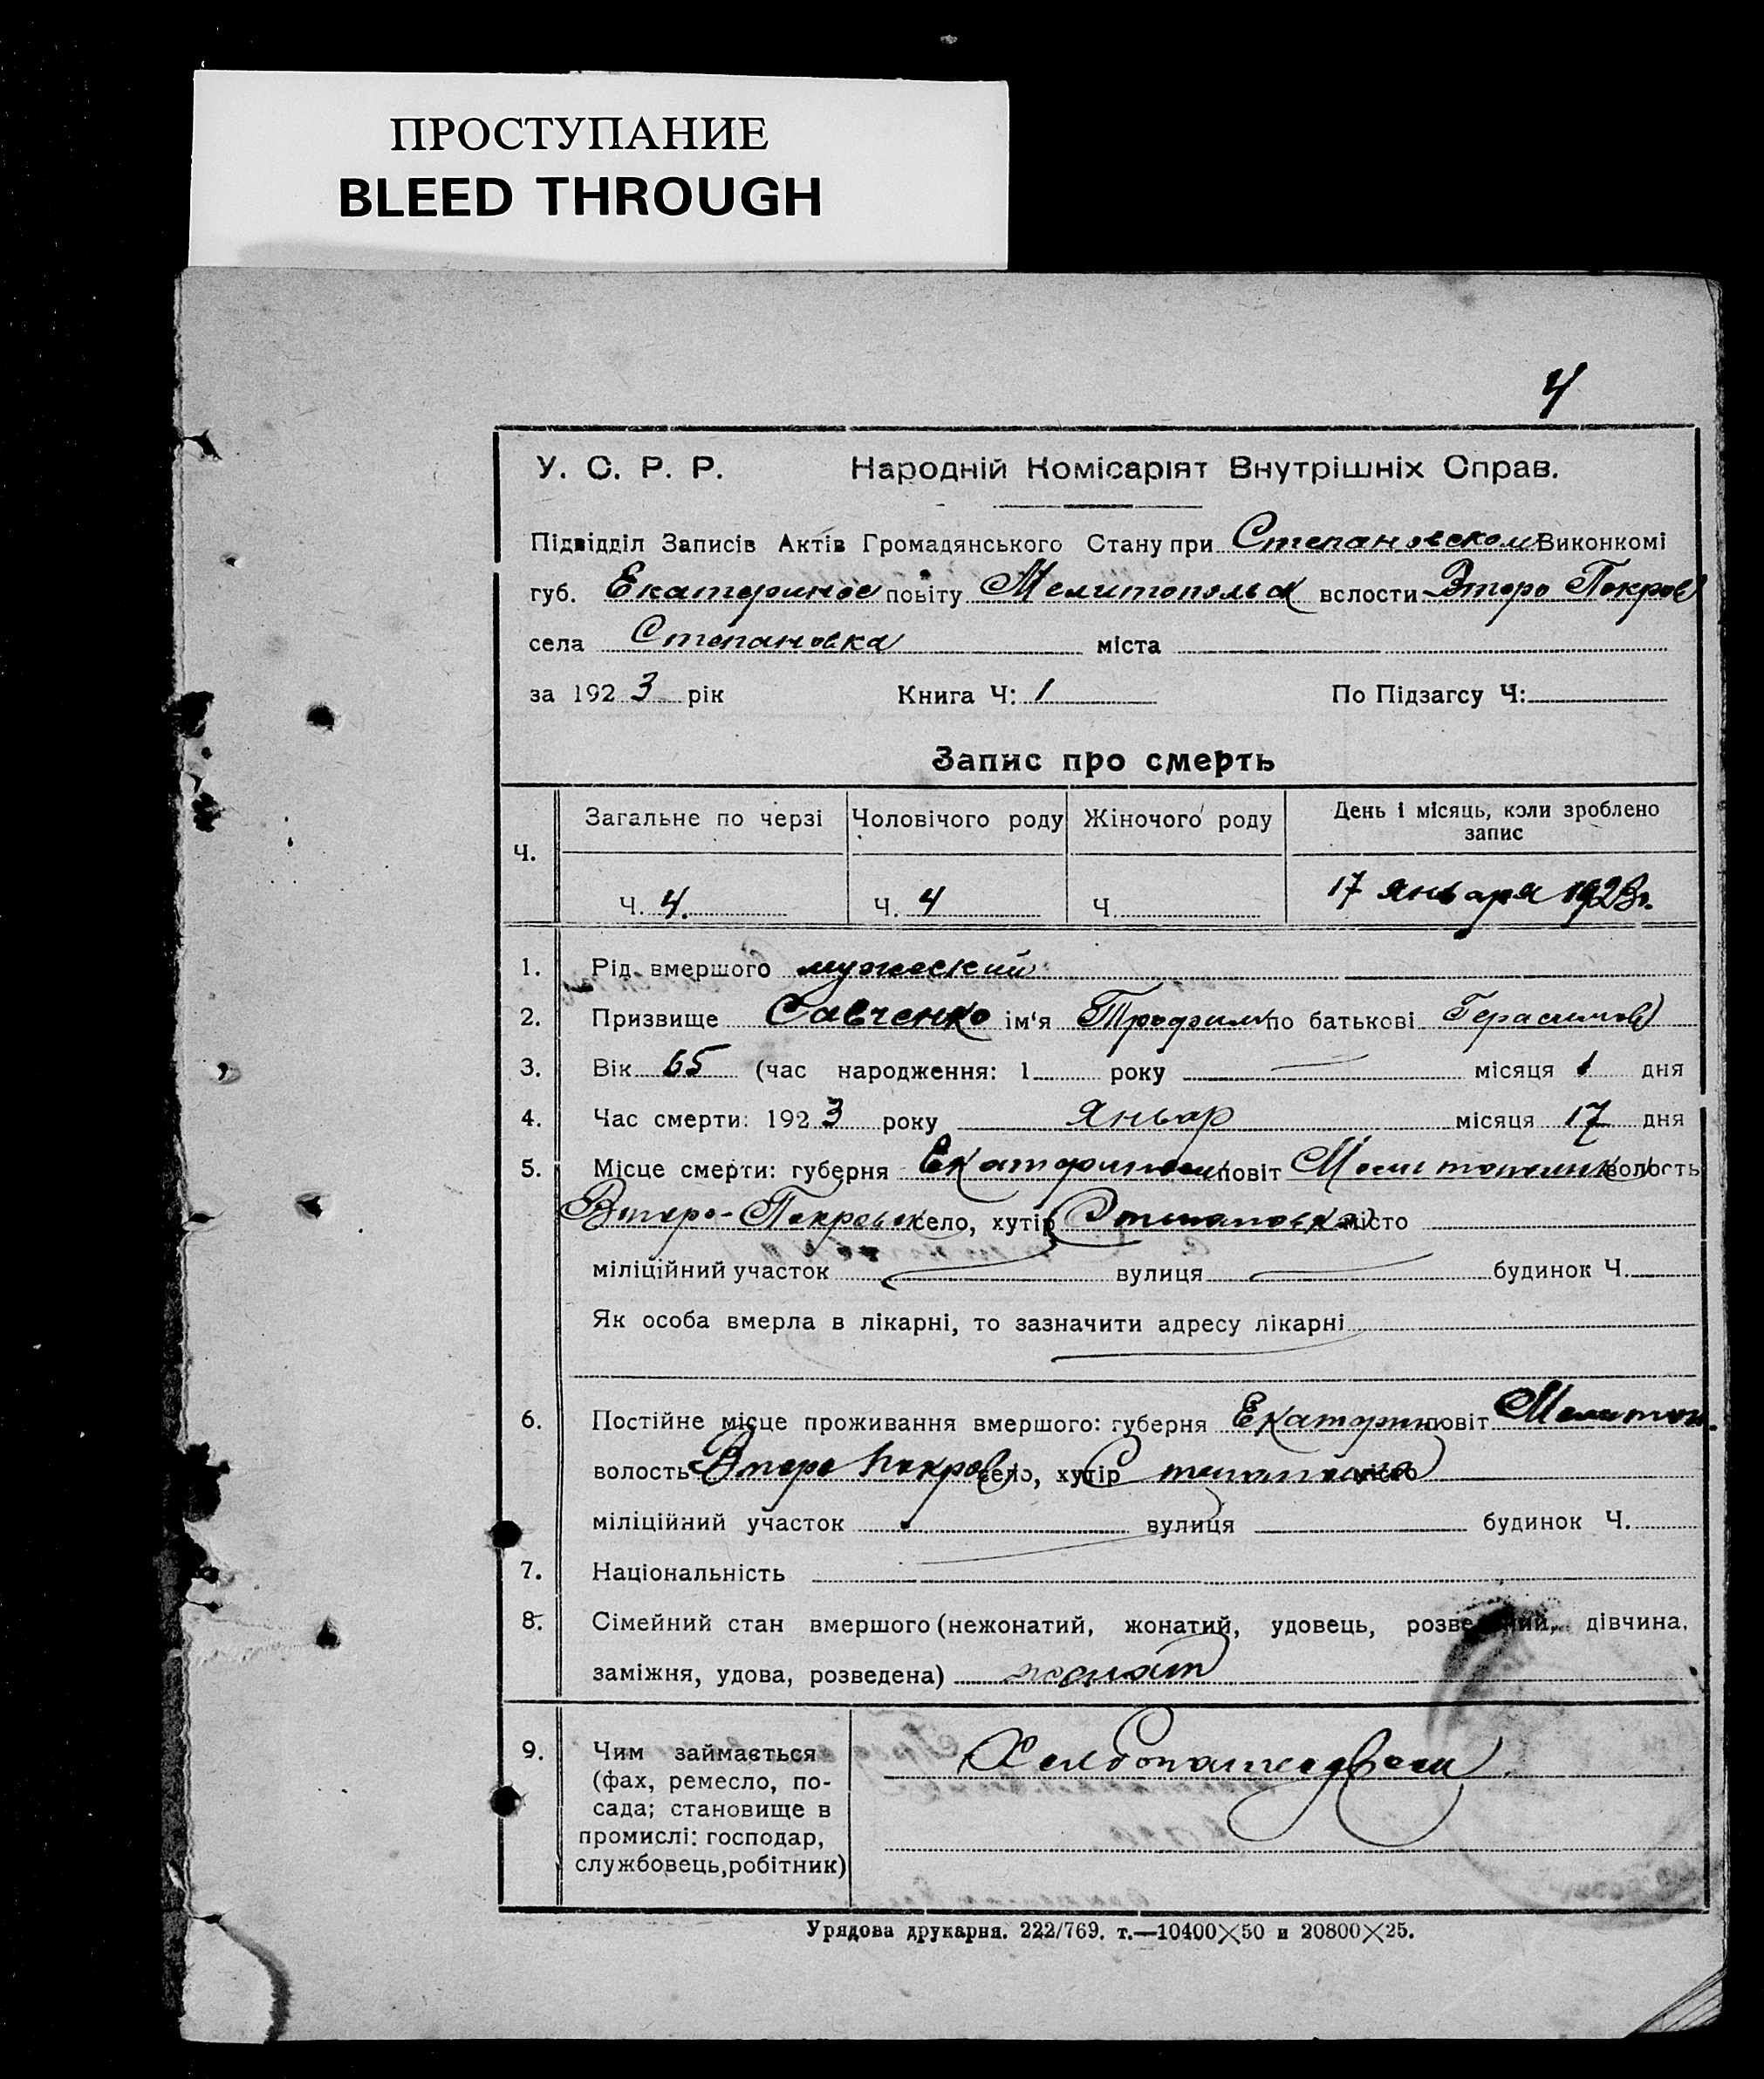 ПРОСТУПАНИЕ
BLEED THROUGH
4
У. С. Р. Р. Народній Комісаріят Внутрішніх Справ.
Підвідділ Записів Актів Громадянського Стану при Степановском Виконкомі
губ. Екатеринос повіту Мелитопольск вслости Второ Покров
села Степановка міста
за 1923 рік Книга Ч: 1 По Підзагсу Ч:
Запис про смерть
Ч. Загальне по черзі Чоловічого роду Жіночого роду День і місяць, коли зроблено запис
Ч. 4. Ч. 4 Ч. 17 января 1923г.
1. Рід вмершого мужеский
2. Призвище Савченко ім'я Трофим по батькові Герасимов
3. Вік 65 (час народження: 1 року місяця 1 дня
4. Час смерти: 1923 року Январ місяця 17 дня
5. Місце смерти: губерня повіт волость
Второ-Покровск село, хутір Степановка місто
міліційний участок вулиця будинок Ч.
Як особа вмерла в лікарні, то зазначити адресу лікарні
6. Постійне місце проживання вмершого: губерня Екатерин повіт Мелитоп.
волость Второ Покров село, хутір Степановка місто
міліційний участок вулиця будинок Ч.
7. Національність
8. Сімейний стан вмершого (нежонатий, жонатий, удовець, розведений, дівчина,
заміжня, удова, розведена) женат
9. Чим займається
(фах, ремесло, по-
сада; становище в
промислі: господар,
службовець, робітник)
Урядова друкарня. 222/769. т.—10400×50 и 20800×25.